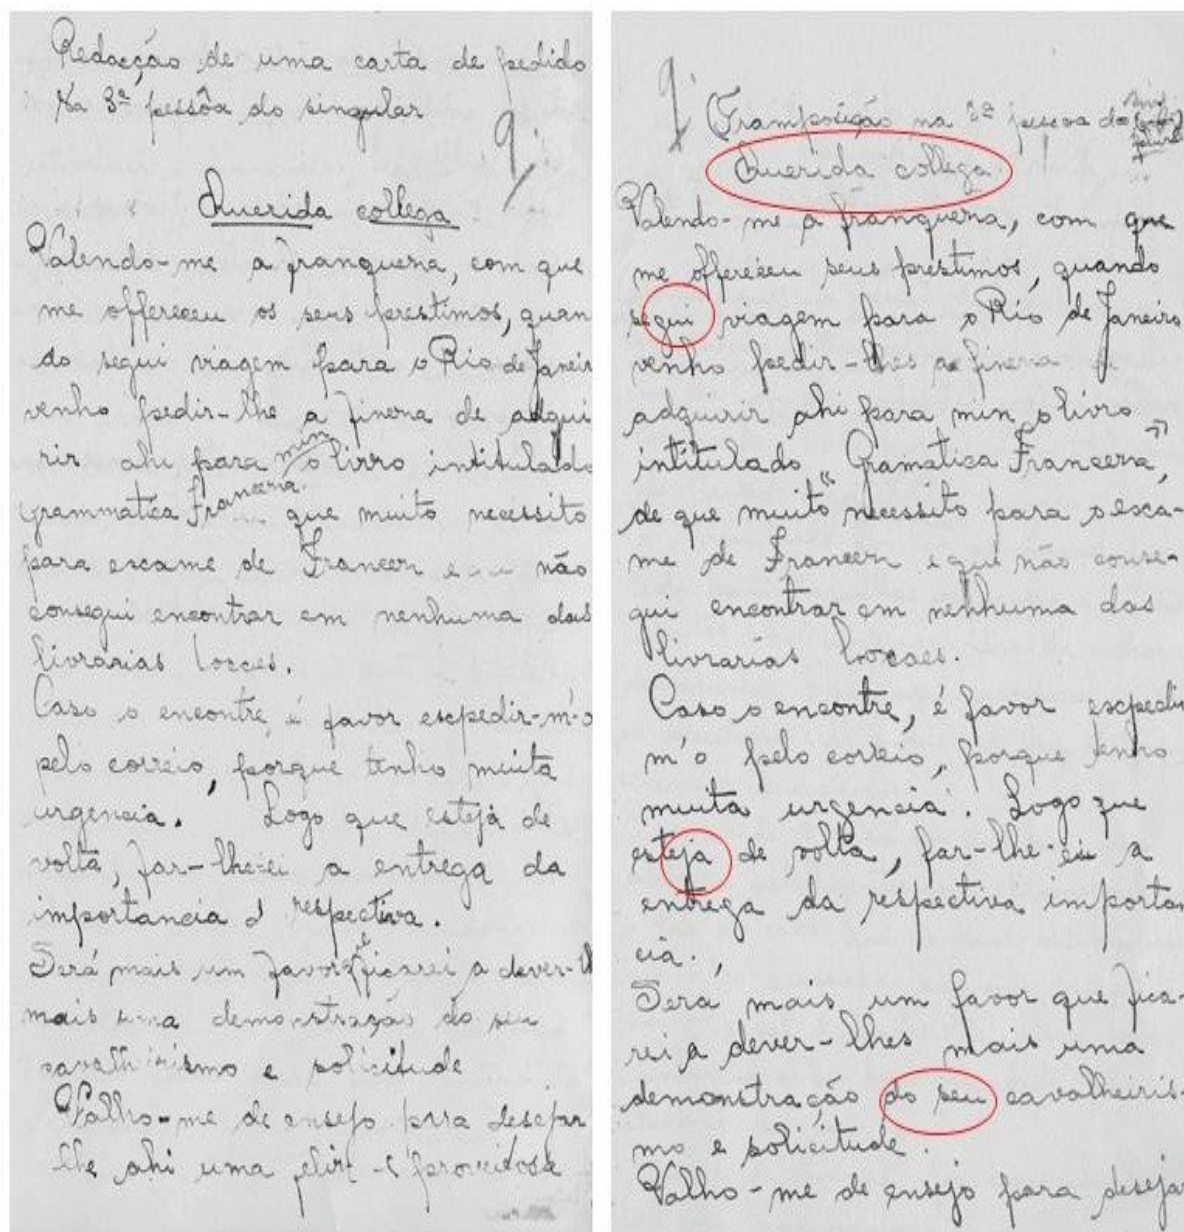 Redacção de uma carta de pedido
Na 3ª pessôa do singular
9
Querida collega
Valendo-me a franqueza, com que
me offereceu os seus prestimos, quan
do segui viagem para o Rio de Janeir
venho pedir-lhe a fineza de adqui
rir ahi para min o livro intitulado
Grammatica Franceza que muito necessito
para escame de Francez e não
consegui encontrar em nenhuma das
livrarias locaes.
Caso o encontre é favor escpedir-m'o
pelo correio, porque tenho muita
urgencia. Logo que esteja de
volta, far-lhe-ei a entrega da
importancia respectiva.
Será mais um favor ficarei a dever-
mais uma demonstração do seu
cavalheirismo e solicitude
Valho-me de ensejo pra desejar
lhe ahi uma e proveitosa
9
Tramposição na pessoa do
Querida collega.
Valendo-me a franqueza, com que
me offereceu seus prestimos, quando
segui viagem para o Rio de Janeiro
venho pedir-lhes a fineza
adquirir ahi para min o livro
intitulado "Gramatica Franceza",
de que muito necessito para o esca-
me de Francez e que não conse-
gui encontrar em nenhuma das
livrarias locaes.
Caso o encontre, é favor escpedir
m'o pelo correio, porque tenho
muita urgencia. Logo que
esteja de volta, far-lhe-ei a
entrega da respectiva importan
cia.,
Será mais um favor que fica-
rei a dever-lhes mais uma
demonstração do seu cavalheiris-
mo e solicitude.
Valho-me de ensejo para desejar